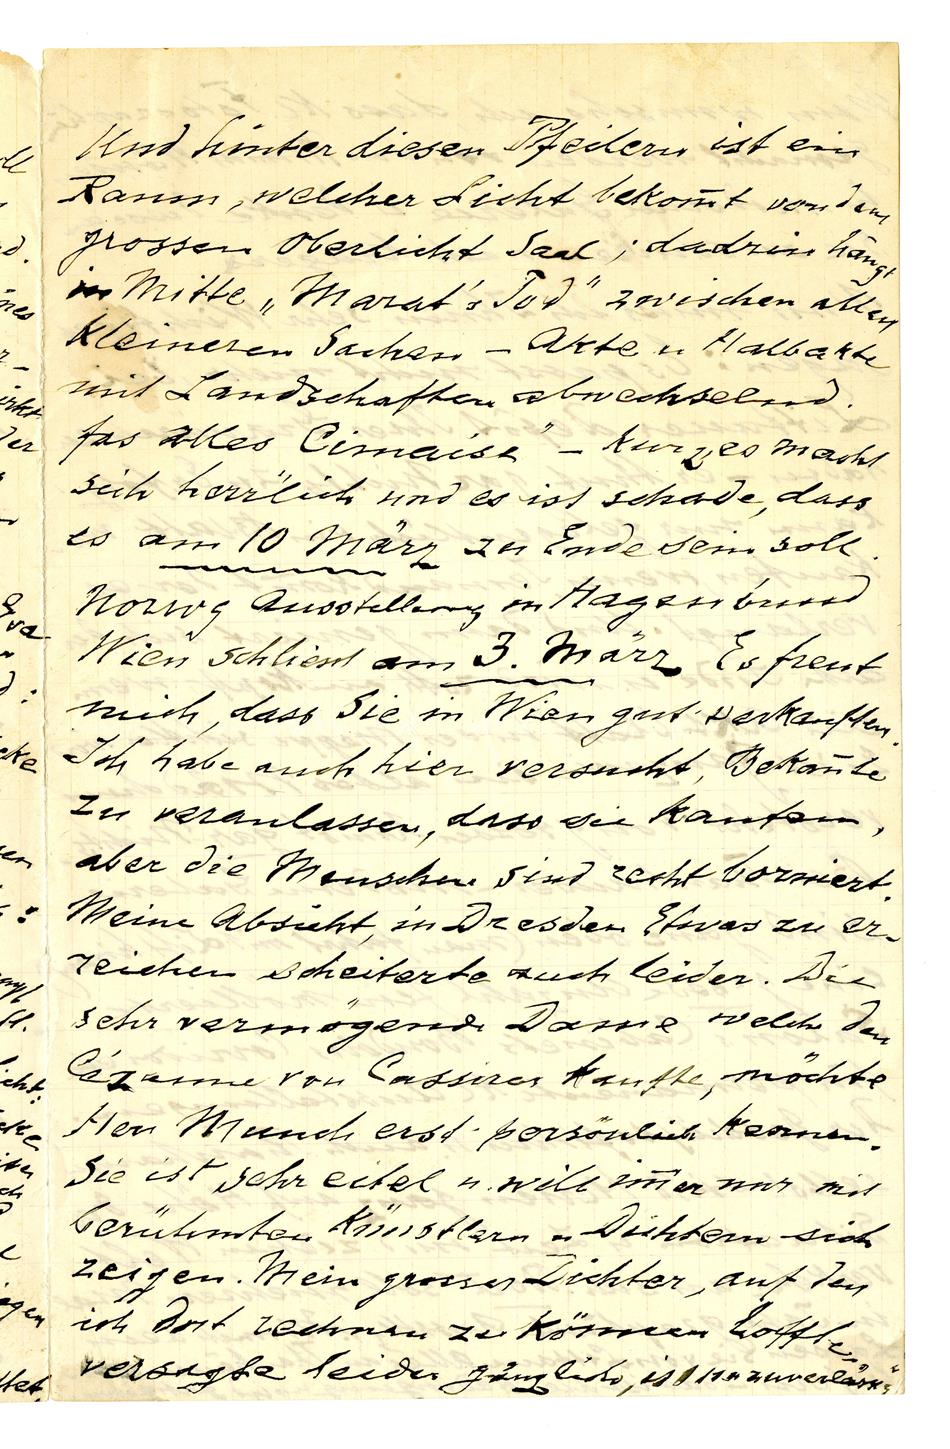 Und hinter diesen Pfeilern ist ein
Raum, welcher Licht bekom̄t von dem
grossen Oberlicht Saal; dadrin hängt
in Mitte „Marat's Tod" zwischen allen
kleineren Sachen – Akte u Halbakte
mit Landschaften abwechselnd.
fas alles Cimaise" – kurz es macht
sich herrlich und es ist schade, dass
es am 10 März zu Ende sein soll.
Norwg Ausstellung in Hagenbund
Wien schliesst am 3. März Es freut
mich, dass Sie in Wien gut verkauften.
Ich habe auch hier versucht, Bekan̄te
zu veranlassen, dass sie kaufen,
aber die Menschen sind recht borniert.
Meine Absicht, in Dresden Etwas zu er-
reichen scheiterte auch leider. Die
sehr vermögende Dame welche den
Cézanne von Cassirer kaufte, möchte
Herr Munch erst persönlich kennen.
Sie ist sehr eitel u. will im̄er nur mit
berühmten Künstlern u Dichtern sich
zeigen. Mein grosser Dichter, auf den
ich dort rechnen zu können hoffte,
versagte leider gänzlich, ist unzuverlässig